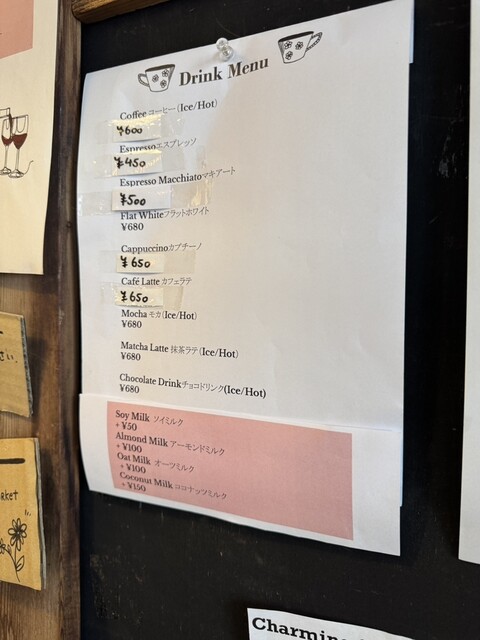 Drink Menu
Coffee コーヒー (Ice/Hot)
¥600
Espresso エスプレッソ
¥450
Espresso Macchiato マキアート
¥500
Flat White フラットホワイト
¥680
Cappuccino カプチーノ
¥650
Café Latte カフェラテ
¥650
Mocha モカ (Ice/Hot)
¥680
Matcha Latte 抹茶ラテ (Ice/Hot)
¥680
Chocolate Drink チョコドリンク (Ice/Hot)
¥680
Soy Milk ソイミルク
+ ¥50
Almond Milk アーモンドミルク
+ ¥100
Oat Milk オーツミルク
+ ¥100
Coconut Milk ココナッツミルク
+ ¥150
さい。
arket